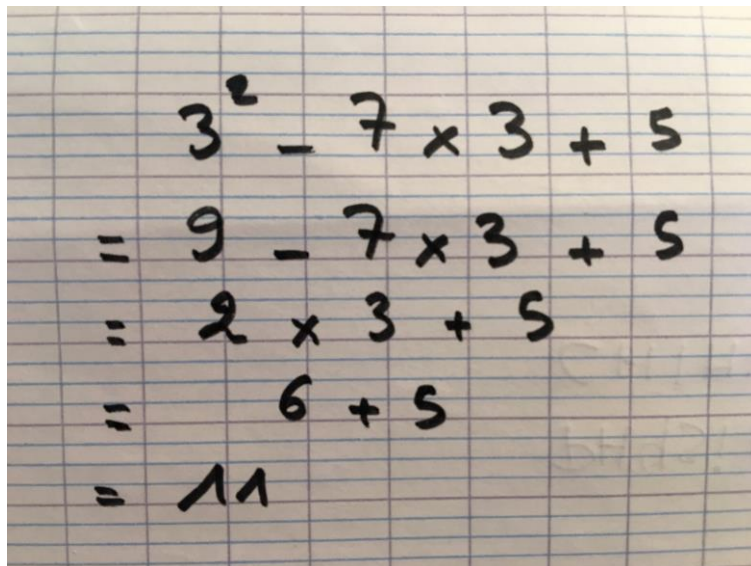 3² - 7 × 3 + 5
= 9 - 7 × 3 + 5
= 2 × 3 + 5
= 6 + 5
= 11